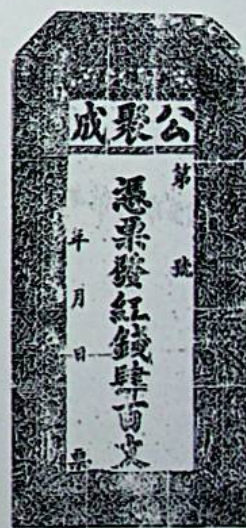 公聚成
第 號
憑票發紅錢肆百文
年 月 日 票